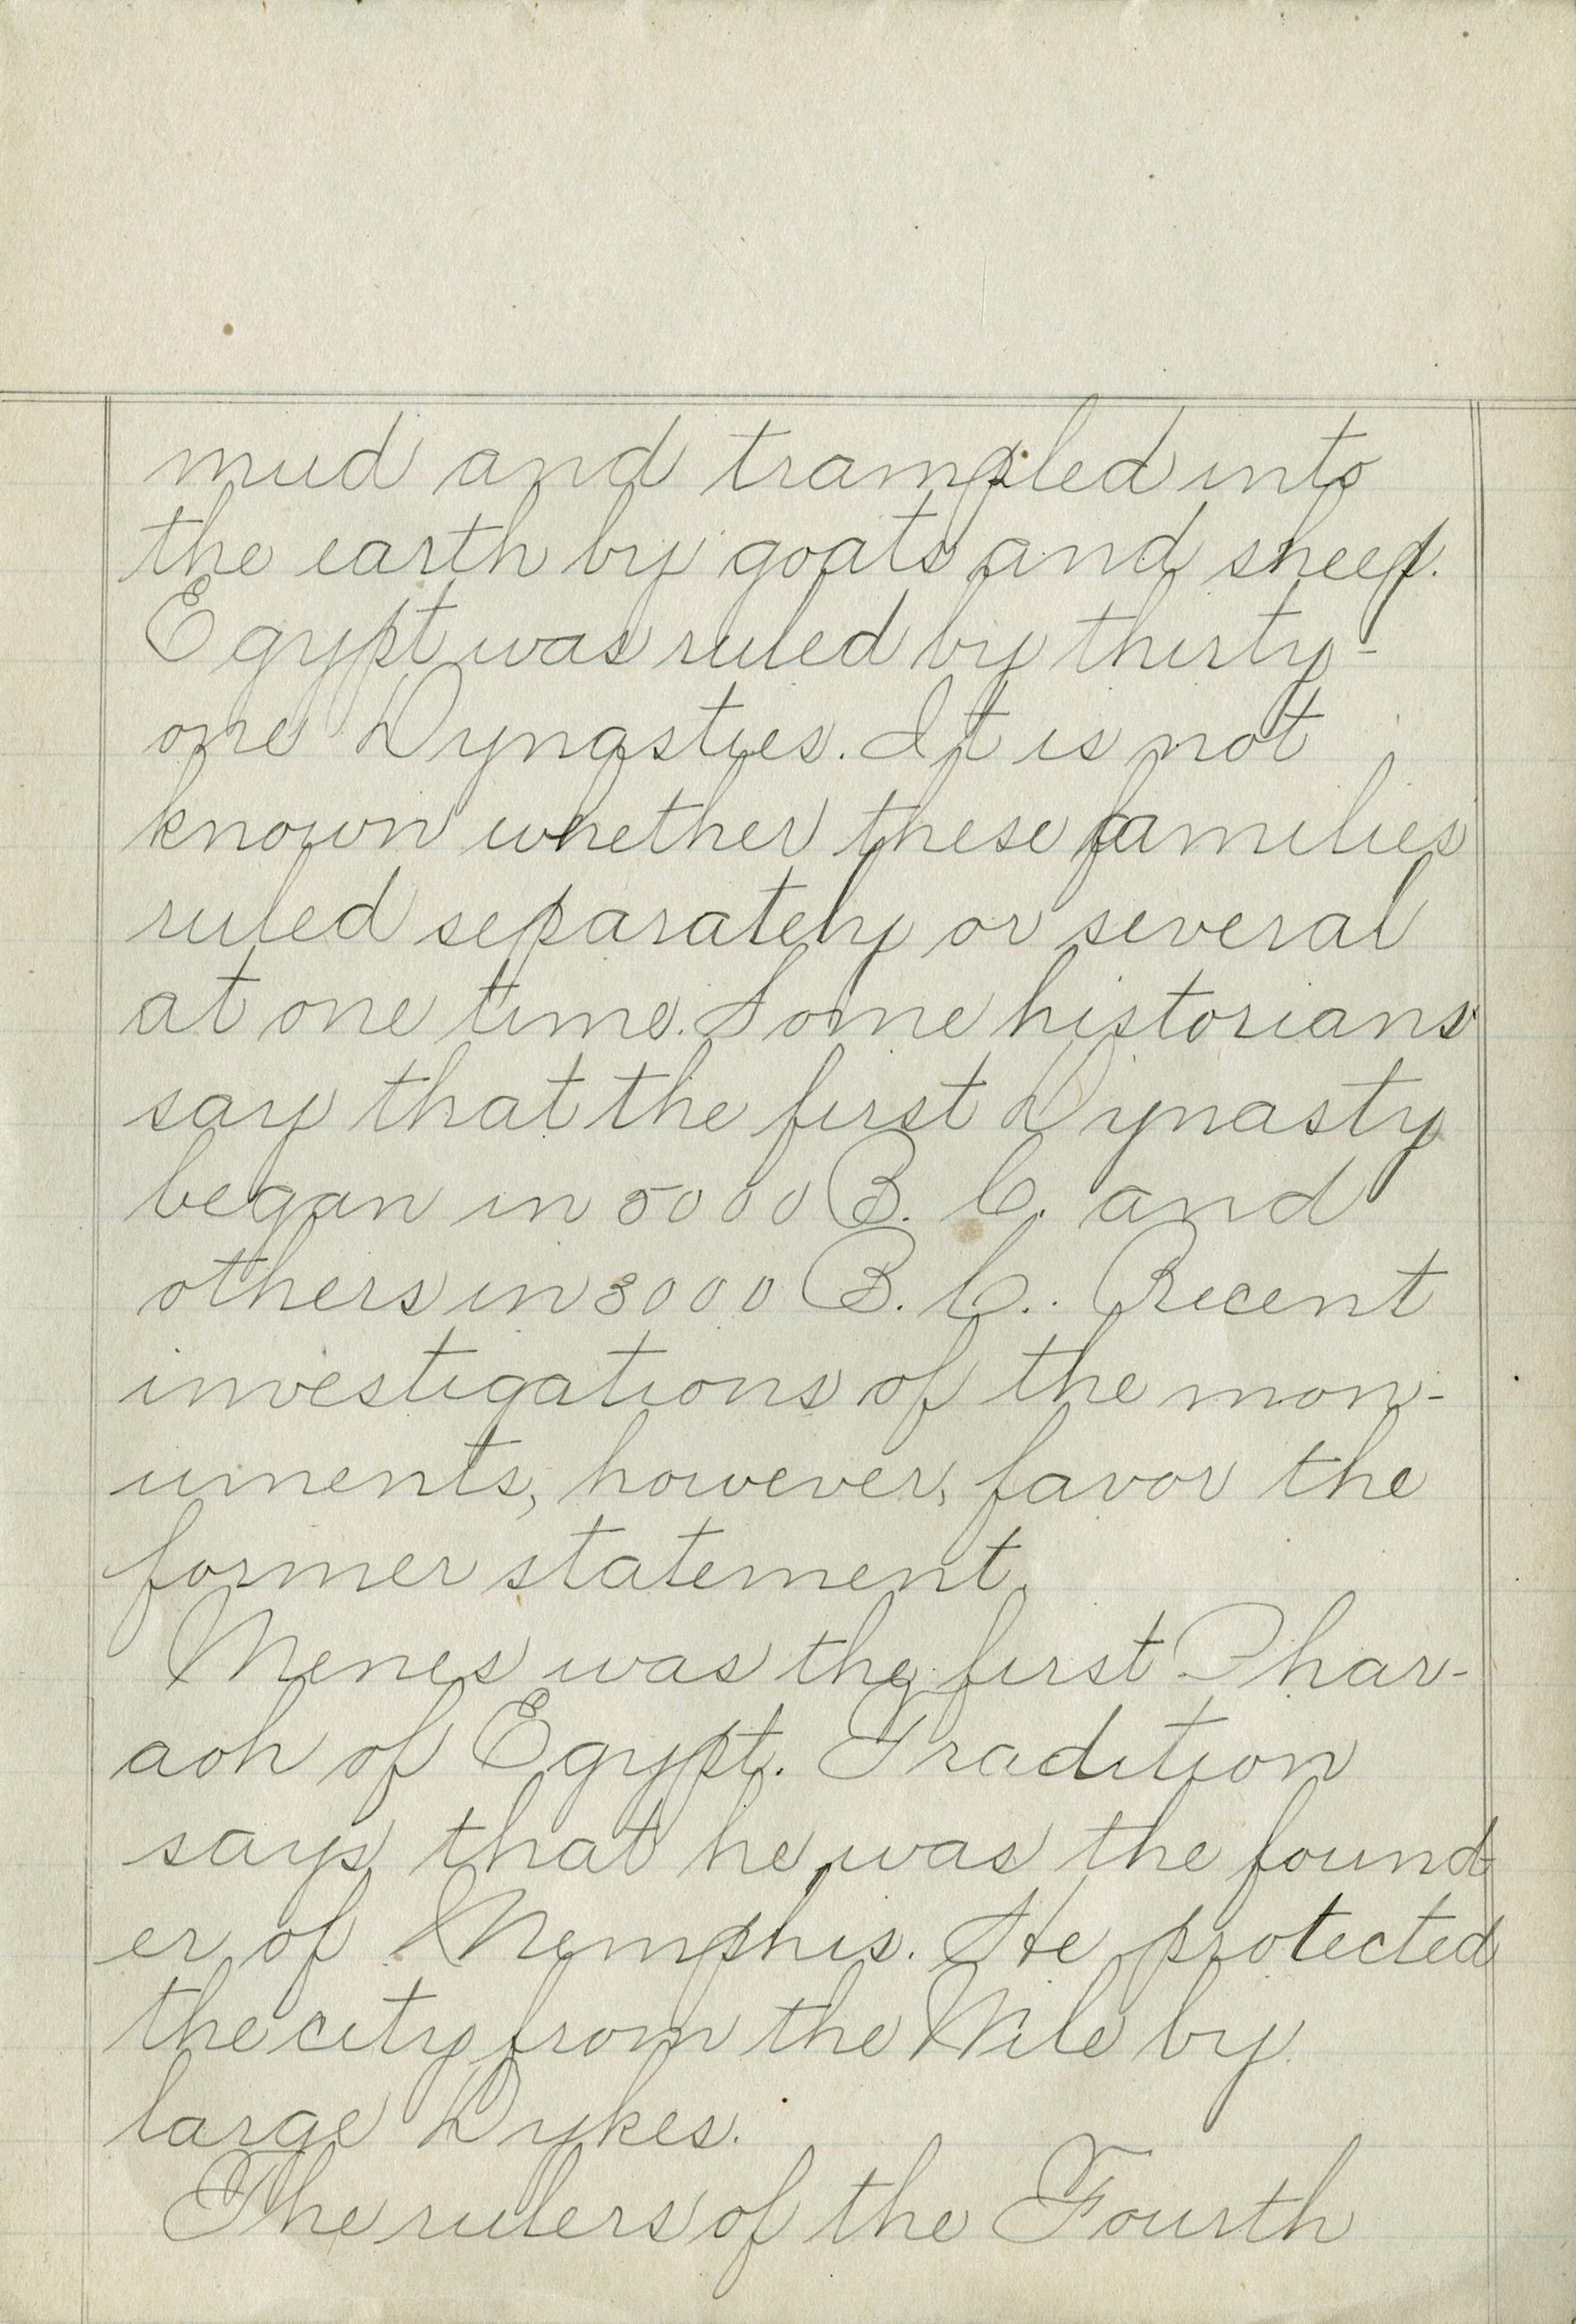 mud and trampled into
the earth by goats and sheep.
Egypt was ruled by thirty-
one Dynasties. It is not
known whether these families
ruled separately or several
at one time. Some historians
say that the first Dynasty
began in 5000 B. C. and
others in 3000 B. C.. Recent
investigations of the mon-
uments, however, favor the
former statement.
Menes was the first Phar-
aoh of Egypt. Tradition
says that he was the found-
er of Memphis. He protected
the city from the Nile by
large Dykes.
The rulers of the Fourth